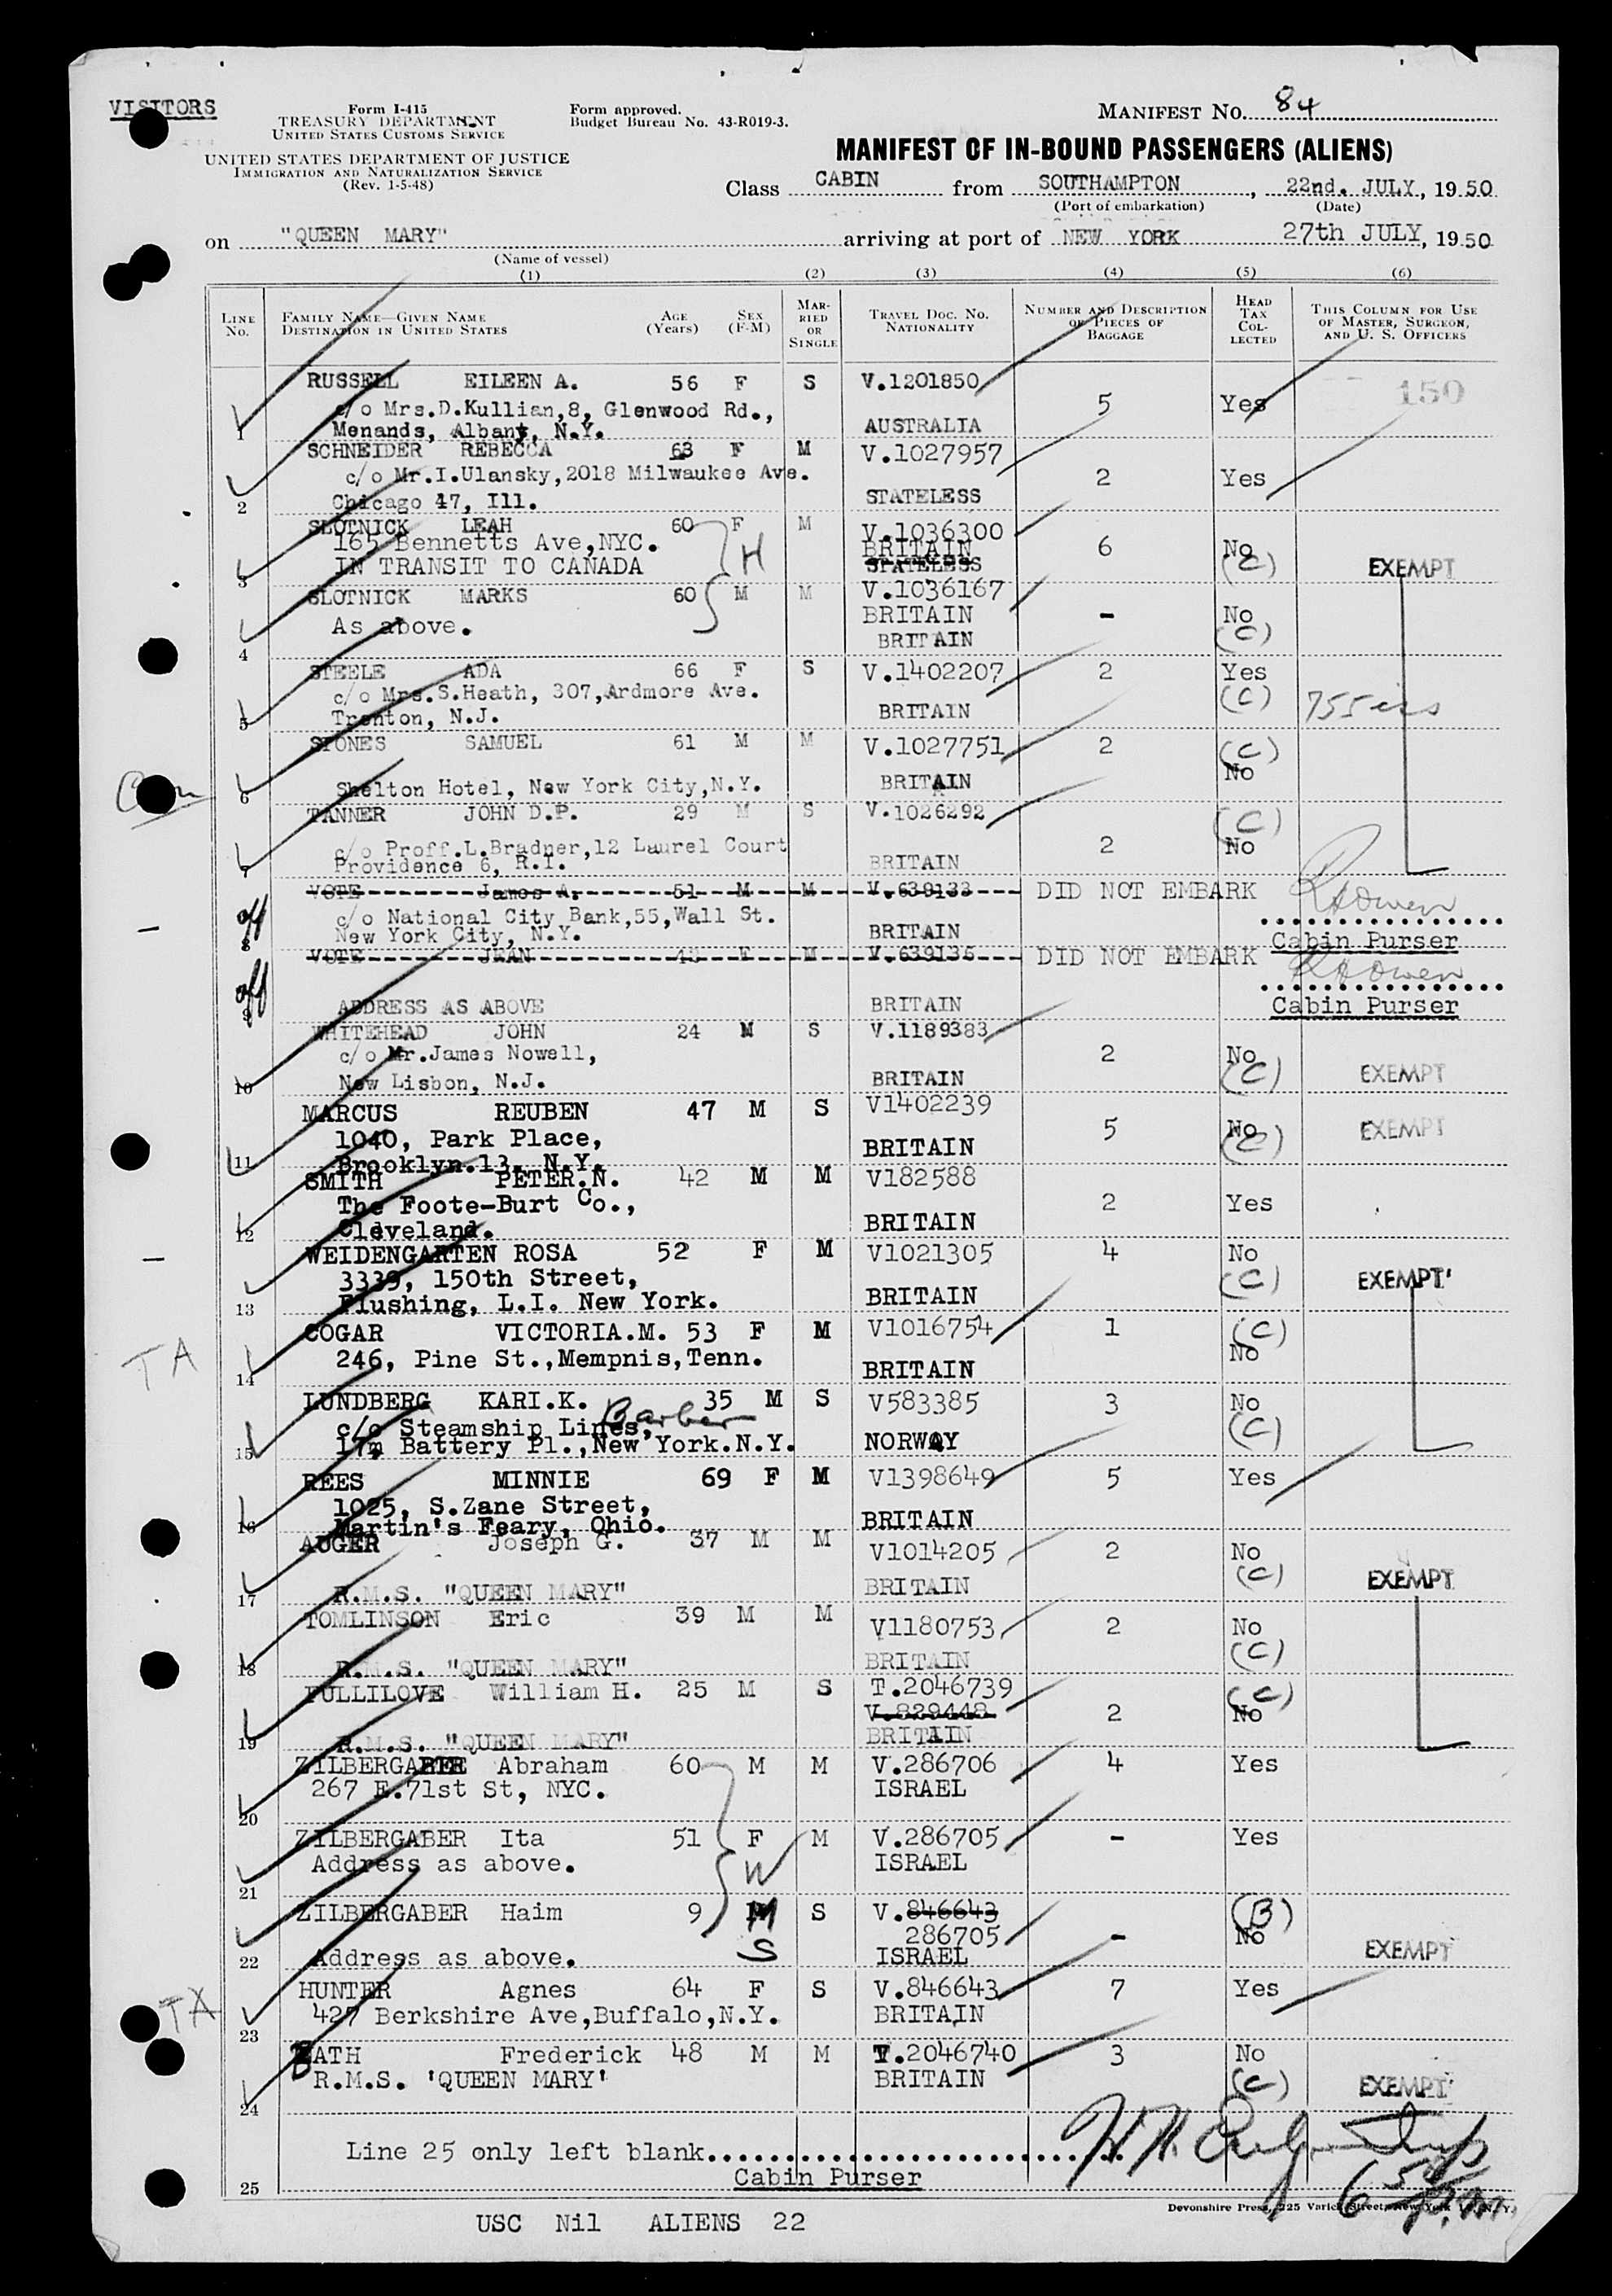 VISITORS
Form I-415
TREASURY DEPARTMENT
UNITED STATES CUSTOMS SERVICE
UNITED STATES DEPARTMENT OF JUSTICE
IMMIGRATION AND NATURALIZATION SERVICE
(Rev. 1-5-48)
Form approved.
Budget Bureau No. 43-R019-3.
MANIFEST NO. 84
MANIFEST OF IN-BOUND PASSENGERS (ALIENS)
Class CABIN from SOUTHAMPTON, 22nd. JULY, 1950
(Port of embarkation) (Date)
on "QUEEN MARY" arriving at port of NEW YORK 27th JULY, 1950
(Name of vessel)
(1) (2) (3) (4) (5) (6)
LINE No. FAMILY NAME—GIVEN NAME DESTINATION IN UNITED STATES AGE (Years) SEX (F-M) MARRIED OR SINGLE TRAVEL DOC. NO. NATIONALITY NUMBER AND DESCRIPTION OF PIECES OF BAGGAGE HEAD TAX COLLECTED THIS COLUMN FOR USE OF MASTER, SURGEON, AND U. S. OFFICERS
RUSSELL EILEEN A. 56 F S V.1201850 5 Yes 150
c/o Mrs.D.Kullian,8, Glenwood Rd.,
1 Menands, Albany, N.Y. AUSTRALIA
SCHNEIDER REBECCA 63 F M V.1027957
c/o Mr.I.Ulansky,2018 Milwaukee Ave. 2 Yes
2 Chicago 47, Ill. STATELESS
SLOTNICK LEAH 60 F M V.1036300
165 Bennetts Ave,NYC. H BRITAIN 6 No
3 IN TRANSIT TO CANADA STATELESS (C) EXEMPT
SLOTNICK MARKS 60 M M V.1036167
BRITAIN - No
4 As above. BRITAIN (C)
STEELE ADA 66 F S V.1402207 2 Yes
c/o Mrs.S.Heath, 307,Ardmore Ave. (C)
5 Trenton, N.J. BRITAIN
STONES SAMUEL 61 M M V.1027751 2 (C)
6 Shelton Hotel, New York City,N.Y. BRITAIN No
TANNER JOHN D.P. 29 M S V.1026292 (C)
c/o Proff.L.Bradner,12 Laurel Court 2 No
7 Providence 6, R.I. BRITAIN
VOTE James A. 51 M M V.639133 DID NOT EMBARK
off c/o National City Bank,55,Wall St.
8 New York City, N.Y. BRITAIN Cabin Purser
VOTE JEAN F M V.639135 DID NOT EMBARK
off
9 ADDRESS AS ABOVE BRITAIN Cabin Purser
WHITEHEAD JOHN 24 M S V.1189383
c/o Mr.James Nowell, 2 No
10 New Lisbon, N.J. BRITAIN (C) EXEMPT
MARCUS REUBEN 47 M S V1402239
1040, Park Place, 5 No EXEMPT
11 Brooklyn.13, N.Y. BRITAIN (C)
SMITH PETER.N. 42 M M V182588
The Foote-Burt Co., 2 Yes
12 Cleveland. BRITAIN
WEIDENGARTEN ROSA 52 F M V1021305 4 No
3339, 150th Street, (C) EXEMPT
13 Flushing, L.I. New York. BRITAIN
COGAR VICTORIA.M. 53 F M V1016754 1 (C)
TA 246, Pine St.,Mempnis,Tenn. No
14 BRITAIN
LUNDBERG KARI.K. 35 M S V583385 3 No
c/o Steamship Lines, Barber (C)
15 17, Battery Pl.,New York.N.Y. NORWAY
REES MINNIE 69 F M V1398649 5 Yes
1025, S.Zane Street,
16 Martin's Feary, Ohio. BRITAIN
AUGER Joseph G. 37 M M V1014205 2 No
(C) EXEMPT
17 R.M.S. "QUEEN MARY" BRITAIN
TOMLINSON Eric 39 M M V1180753 2 No
(C)
18 R.M.S. "QUEEN MARY" BRITAIN
PULLILOVE William H. 25 M S T.2046739 (C)
V.829448 2 No
19 R.M.S. "QUEEN MARY" BRITAIN
ZILBERGABER Abraham 60 M M V.286706 4 Yes
267 E.71st St, NYC. ISRAEL
20
ZILBERGABER Ita 51 F M V.286705 - Yes
Address as above. W ISRAEL
21
ZILBERGABER Haim 9 M S V.846643 (B)
286705 - No
22 Address as above. S ISRAEL EXEMPT
HUNTER Agnes 64 F S V.846643 7 Yes
TA 427 Berkshire Ave,Buffalo,N.Y. BRITAIN
23
BATH Frederick 48 M M T.2046740 3 No
R.M.S. 'QUEEN MARY' BRITAIN (C) EXEMPT
24
Line 25 only left blank
25 Cabin Purser
Devonshire Press, 225 Varick Street, New York
USC Nil ALIENS 22